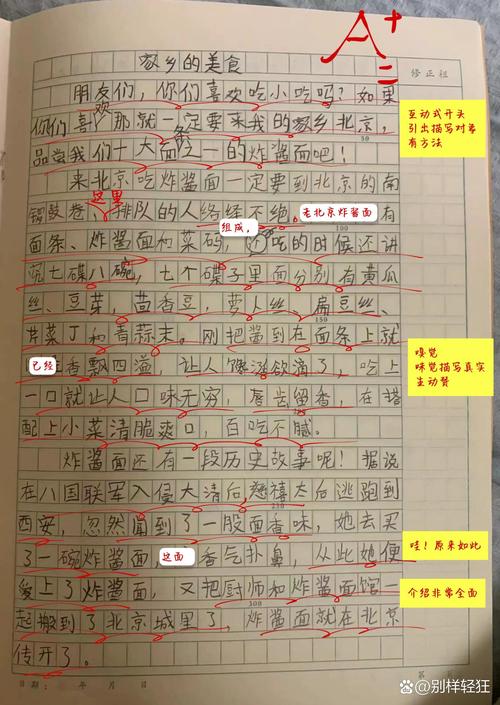 A+
二
修正栏
家乡的美食
朋友们，你们喜欢吃小吃吗？如果
欢
你们喜 那就一定要来我的家乡北京，
互动式开头
引出描写对象
有方法
50
品尝我们十大面 一的炸酱面吧！
条
来北京吃炸酱面一定要到北京的南
这里
锣鼓巷、排队的人络绎不绝。老北京炸酱面有
100
组成，
面条、炸酱面和菜码，还吃的时候还讲
究七碟八碗，七个碟子里面分别有黄瓜
丝、豆芽，茴香豆，萝卜丝、扁豆丝、
芹菜丁和青蒜末。刚把酱到在面条上就
已经 香飘四溢，让人馋涎欲滴了，吃上
嗅觉
味觉描写真实
生动赞
一口就让人口味无穷，唇齿留香，在搭
配上小菜清脆爽口，百吃不腻。
炸酱面还有一段历史故事呢！据说
在八国联军入侵大清后，慈禧太后逃跑到
西安，忽然闻到了一股面香味，她去买
了一碗炸酱面，这面 香气扑鼻，从此她便
哇！原来如此
爱上了炸酱面，又把厨师和炸酱面馆一
介绍非常全面
300
起搬到了北京城里了，炸酱面就在北京
传开了。
日期： 年 月 日
第
百度 @别样轻狂